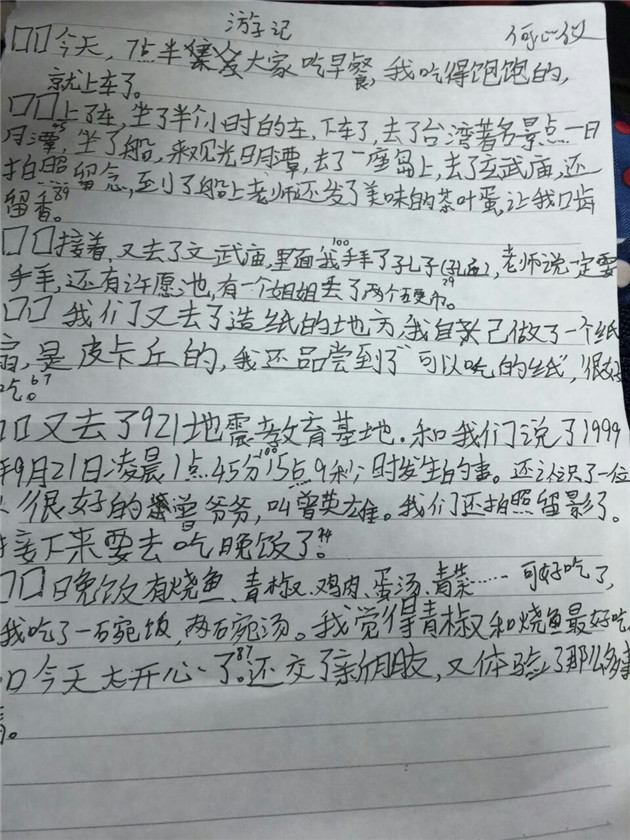 游记 何心仪
□□今天，7点半大家吃早餐，我吃得饱饱的，
就上车了。
□□上了车，坐了半个小时的车，下车了，去了台湾著名景点一日
月潭，坐了船，来观光日月潭，去了一座岛上，去了玄武庙，还
拍照留念，到了船上老师还发了美味的茶叶蛋，让我口齿
留香。
□□接着，又去了文武庙，里面我拜了孔子(孔庙)，老师说一定要
拜，还有许愿池，有一个姐姐丢了两个硬币。
□□我们又去了造纸的地方，我自己做了一个纸
扇，是皮卡丘的，我还品尝到了"可以吃的纸"，很好
吃。
□□又去了921地震教育基地。和我们说了1999
年9月21日凌晨1点45分15点9秒时发生的事。还认识了一位
人很好的曾爷爷，叫曾英雄。我们还拍照留影了。
接下来要去吃晚饭了。
□□晚饭有烧鱼、青椒、鸡肉、蛋汤、青菜……可好吃了，
我吃了一碗饭，两碗汤。我觉得青椒和烧鱼最好吃。
□今天太开心了。还交了新朋友，又体验了那么多事
情。